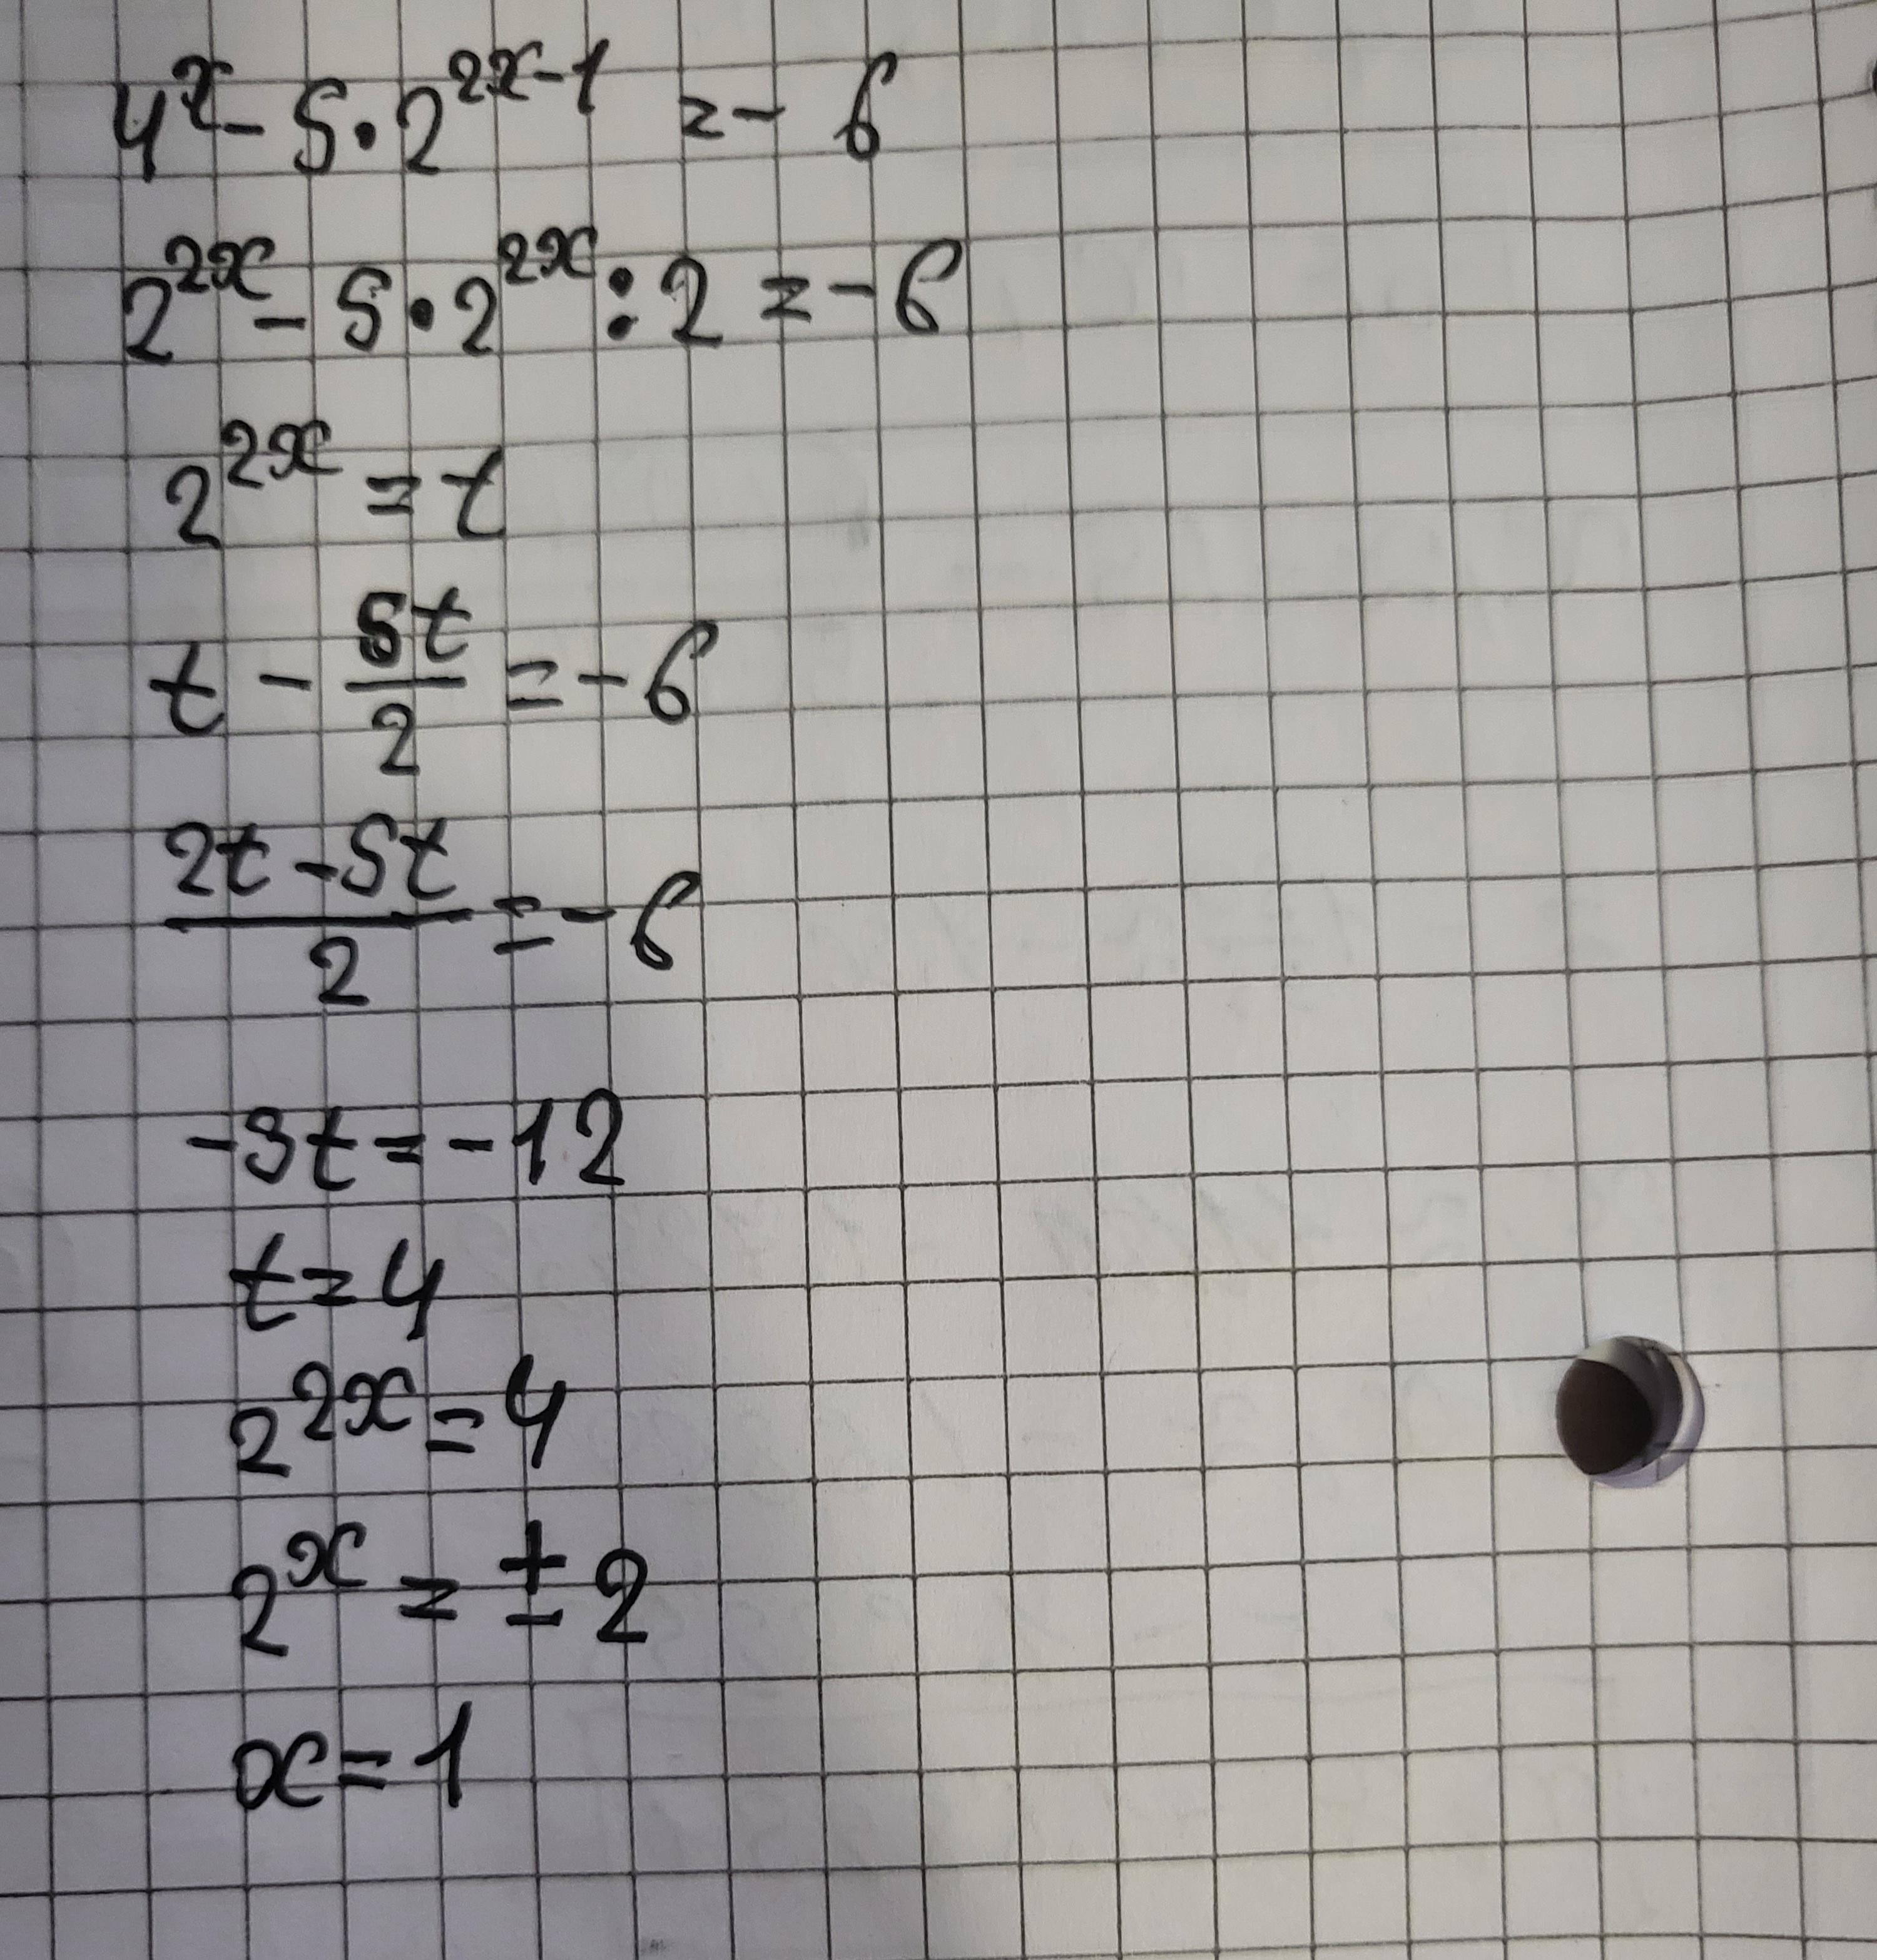 4^x - 5 · 2^{2x-1} = - 6
2^{2x} - 5 · 2^{2x} : 2 = - 6
2^{2x} = t
t - \frac{5t}{2} = - 6
\frac{2t - 5t}{2} = - 6
-3t = - 12
t = 4
2^{2x} = 4
2^x = ± 2
x = 1